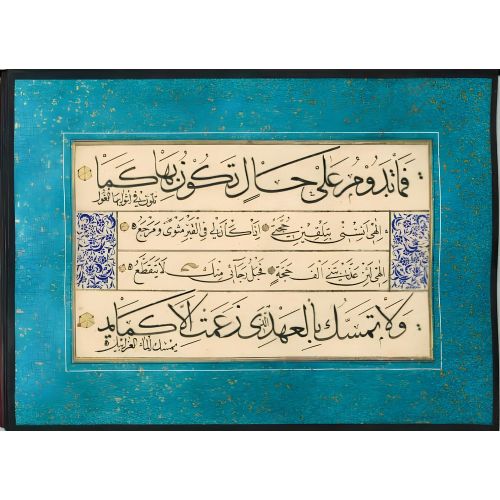 فما تدوم على حال تكون بها كما
تلون في أثوابها الغول
الهي آنسني بتلقين حجتي اذا كان لي في القبر مثوى ومرجع
الهي لئن عذبتني الف حجة فحبل رجائي منك لا يتقطع
ولا تمسك بالعهد الذي زعمت الا كما
يمسك الماء الغرابيل